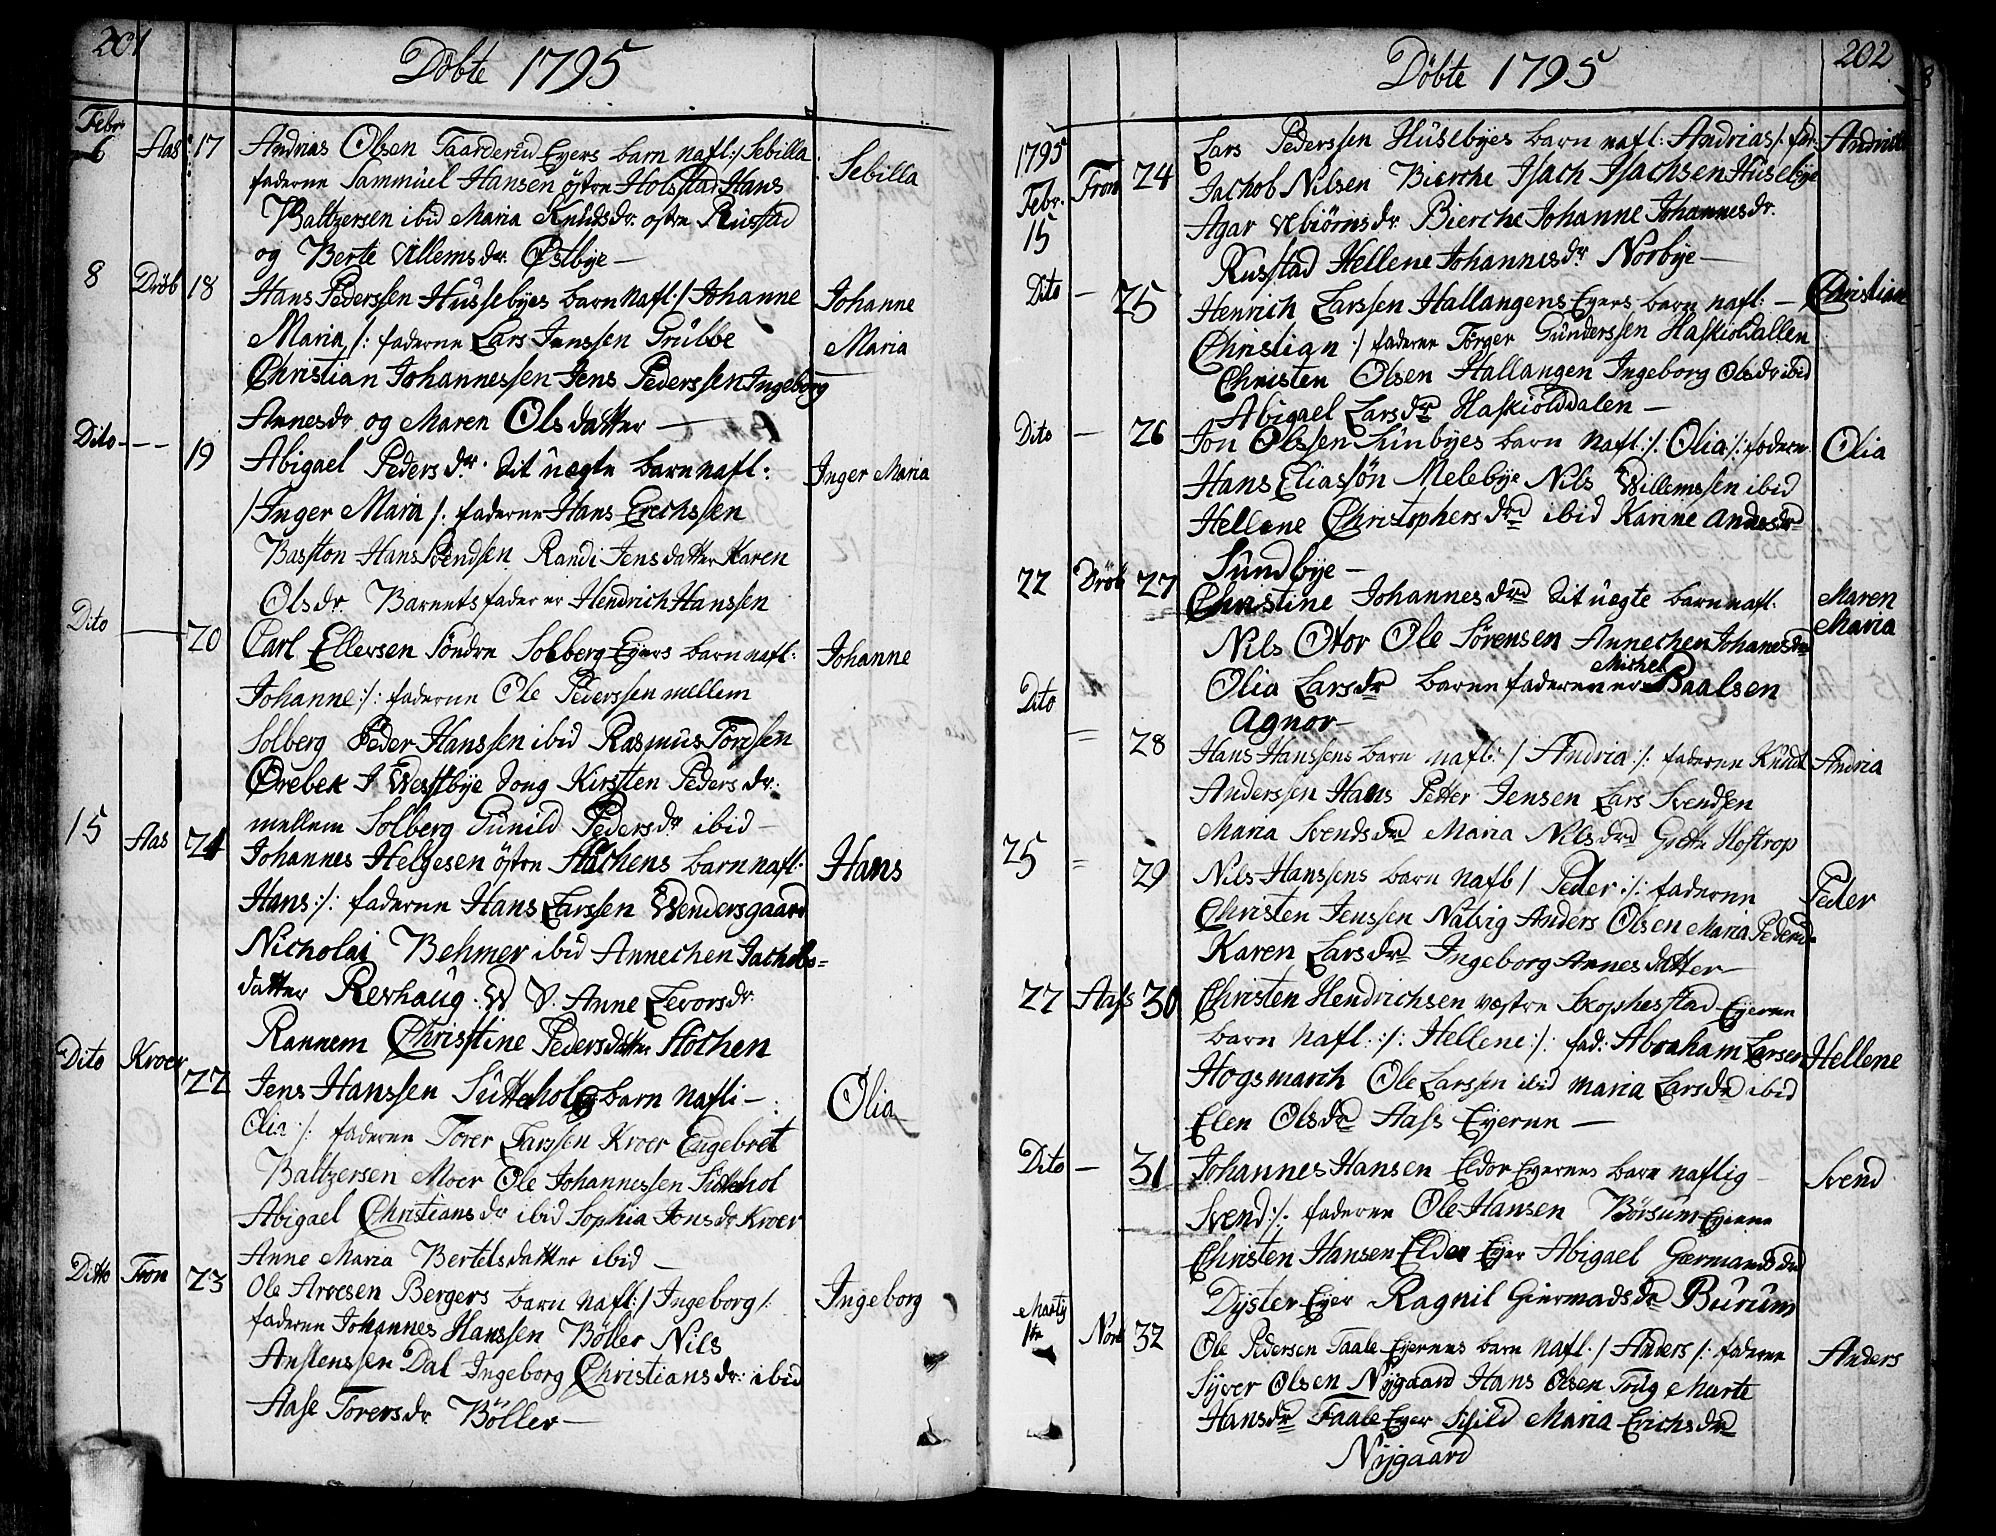 201
Döbte 1795
Febr.
6 Aas 17 Andrias Olsen Taarderud Eyers barn nafl:/ Sebilla Sebilla
faderne Sammuel Hansen östre Holstad Hans
Baltzersen ibid Maria Knudsdr. östre Rustad
og Berte Villemsdr. Østbye —
8 Dröb 18 Hans Pederssen Hussebyes barn nafl:/ Johanne Johanne
Maria /: faderne Lars Jenssen Grübbe Maria
Christian Johannessen Jens Pederssen Ingeborg
Annesdr og Maren Olsdatter —
Dito — — 19 Abigael Pedersdr. Sit uægte barn nafl: Inger Maria
/ Inger Maria /: faderne Hans Erichssen
Basston Hans Svendsen Randi Jensdatter Karen
Olsdr. Barnets fader er Hendrich Hanssen
Dito — 20 Carl Ellersen Söndre Solberg Eyers barn nafl: Johanne
Johanne :/: faderne Ole Pederssen mellem
Solberg Peder Hanssen ibid Rasmus Tordsen
Ørebek I Westbye Song Kirsten Pedersdr.
mellem Solberg Gunild Pedersdr ibid —
15 Aas 21 Johannes Helgesen östre Stöchens barn nafl: Hans
Hans :/: faderne Hans Larssen Wendersgaard
Nicholai Behmer ibid Annechen Jachobs=
datter Revhaug W V. Anne Levorsdr.
Rannem Christine Pedersdatter Stöchen
Dito Kroer 22 Jens Hanssen Sütteholg barn nafl: — Olia
Olia :/: faderne Torer Larssen Kroer Engebret
Baltzersen Moer Ole Johannessen Sütteholt
Abigael Christiansdr ibid Sophia Jonsdr Kroer
Anne Maria Bertelsdatter ibid —
Ditto Fron 23 Ole Arvesen Bergers barn nafl:/ Ingeborg /: Ingeborg
faderne Johannes Hanssen Böller Nils
Anstenssen Dal Ingeborg Christiansdr: ibid
Aase Torersdr Böller —
202
Döbte 1795
1795 Febr. 15 Fron 24 Lars Pederssen Hüsebyes barn nafl: Andrias /: fad: Andrias
Jachob Nilsen Bierche Isach Isachsen Hüsebye
Agar Asbiörnsdr. Bierche Johanne Johannesdr.
Rustad Hellene Johannisdr Norbye —
Dito — 25 Henrich Larssen Hallangens Eyers barn nafl: — Christian
Christian :/ faderne Törger Gunderssen Haskioldallen
Christen Olsen Hallangen Ingeborg Olsdr ibid
Abigael Larsdr Haskiolddalen —
Dito — 26 Jon Olssen Sunbyes barn nafl:/: Olia /: faderne Olia
Hans Eliassön Melebye Nils Willemssen ibid
Hellene Christophersdr ibid Karine Andersdr
Sundbye —
22 Dröb 27 Christine Johannesdr Sit uægte barn nafl. Maren Maria
Nils Otor Ole Sörensen Annechen Johanesdr
Olia Larsdr barnefaderen er Michel Paalsen
Agnor —
Dito = 28 Hans Hanssens barn nafl:/ Andria :/: faderne Knud Andria
Anderssen Hans Petter Jensen Lars Svendsen
Maria Svendsdr Maria Nilsdr Giætte Hostrop
25 = 29 Nils Hanssens barn nafl / Peder :/: faderne Peder
Christen Jenssen Natvig Anders Olsen Maria Pedersdr
Karen Larsdr Ingeborg Annesdatter —
27 Aass 30 Christen Hendrichsen væstre Skophesstad Eyerne
barn nafl: :/: Hellene :/: fad: Abraham Larsen Hellene
Hogsmarch Ole Larssen ibid Maria Larsdr ibid
Elen Olsdr Aass Eyerne —
Dito — 31 Johannes Hansen Eldor Eyernes barn naflig — Svend
Svend :/: faderne Ole Hansen Börsum Eyerne
Christen Hansen Elder Ejer Abigael Giermandsdr
Dyster Ejer Ragnil Giermadsdr Burum
Martÿ 1te Nord 32 Ole Pedersen Faale Eyernes barn nafl. / Anders /: faderne Anders
Syver Olsen Nÿgaard Hans Olsen Trüg Marte
Hansdr Faale Eyer Sihild Maria Erichsdr
Nÿgaard